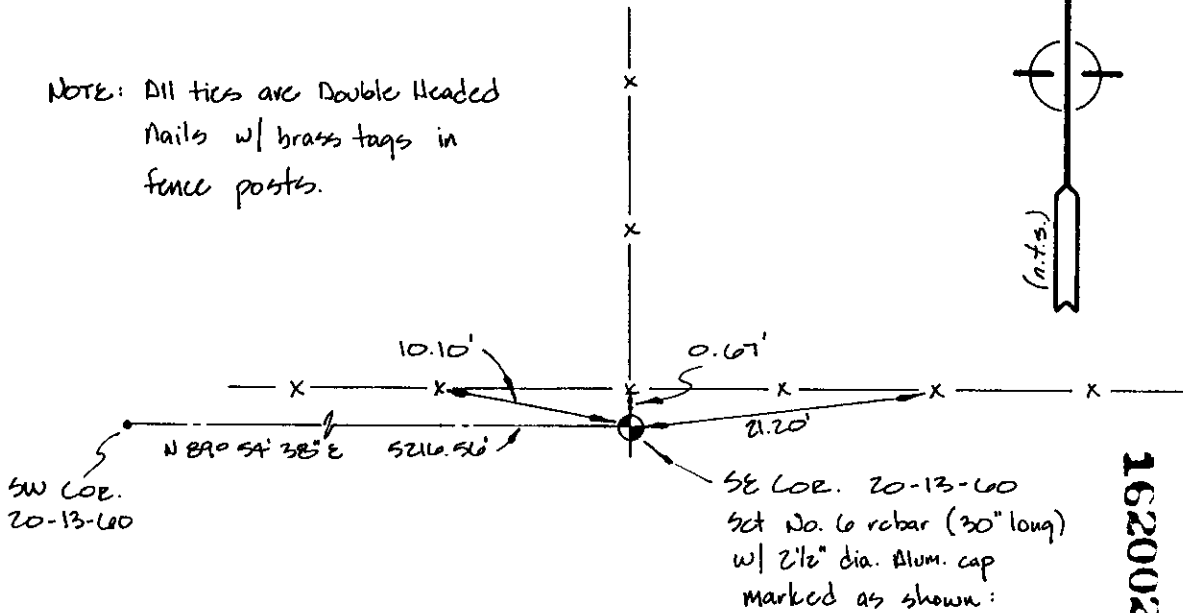 NOTE: All ties are Double Headed
Nails w/ brass tags in
fence posts.
(n.t.s.)
10.10'
0.67'
21.20'
N 89° 54' 38" E 5216.56'
SW COR.
20-13-60
SE COR. 20-13-60
Set No. 6 rebar (30" long)
w/ 2 1/2" dia. Alum. cap
marked as shown:
162002